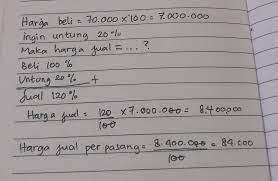 Harga beli = 70.000 x 100 = 7.000.000
ingin untung 20%
Maka harga jual = ... ?
Beli 100 %
Untung 20 % +
Jual 120 %
Harga jual = 120/100 x 7.000.000 = 8.400.000
Harga jual per pasang = 8.400.000/100 = 84.000